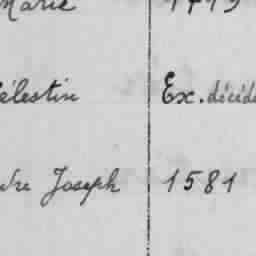 Marie 1419
élestin Ex. décidé
dre Joseph 1581